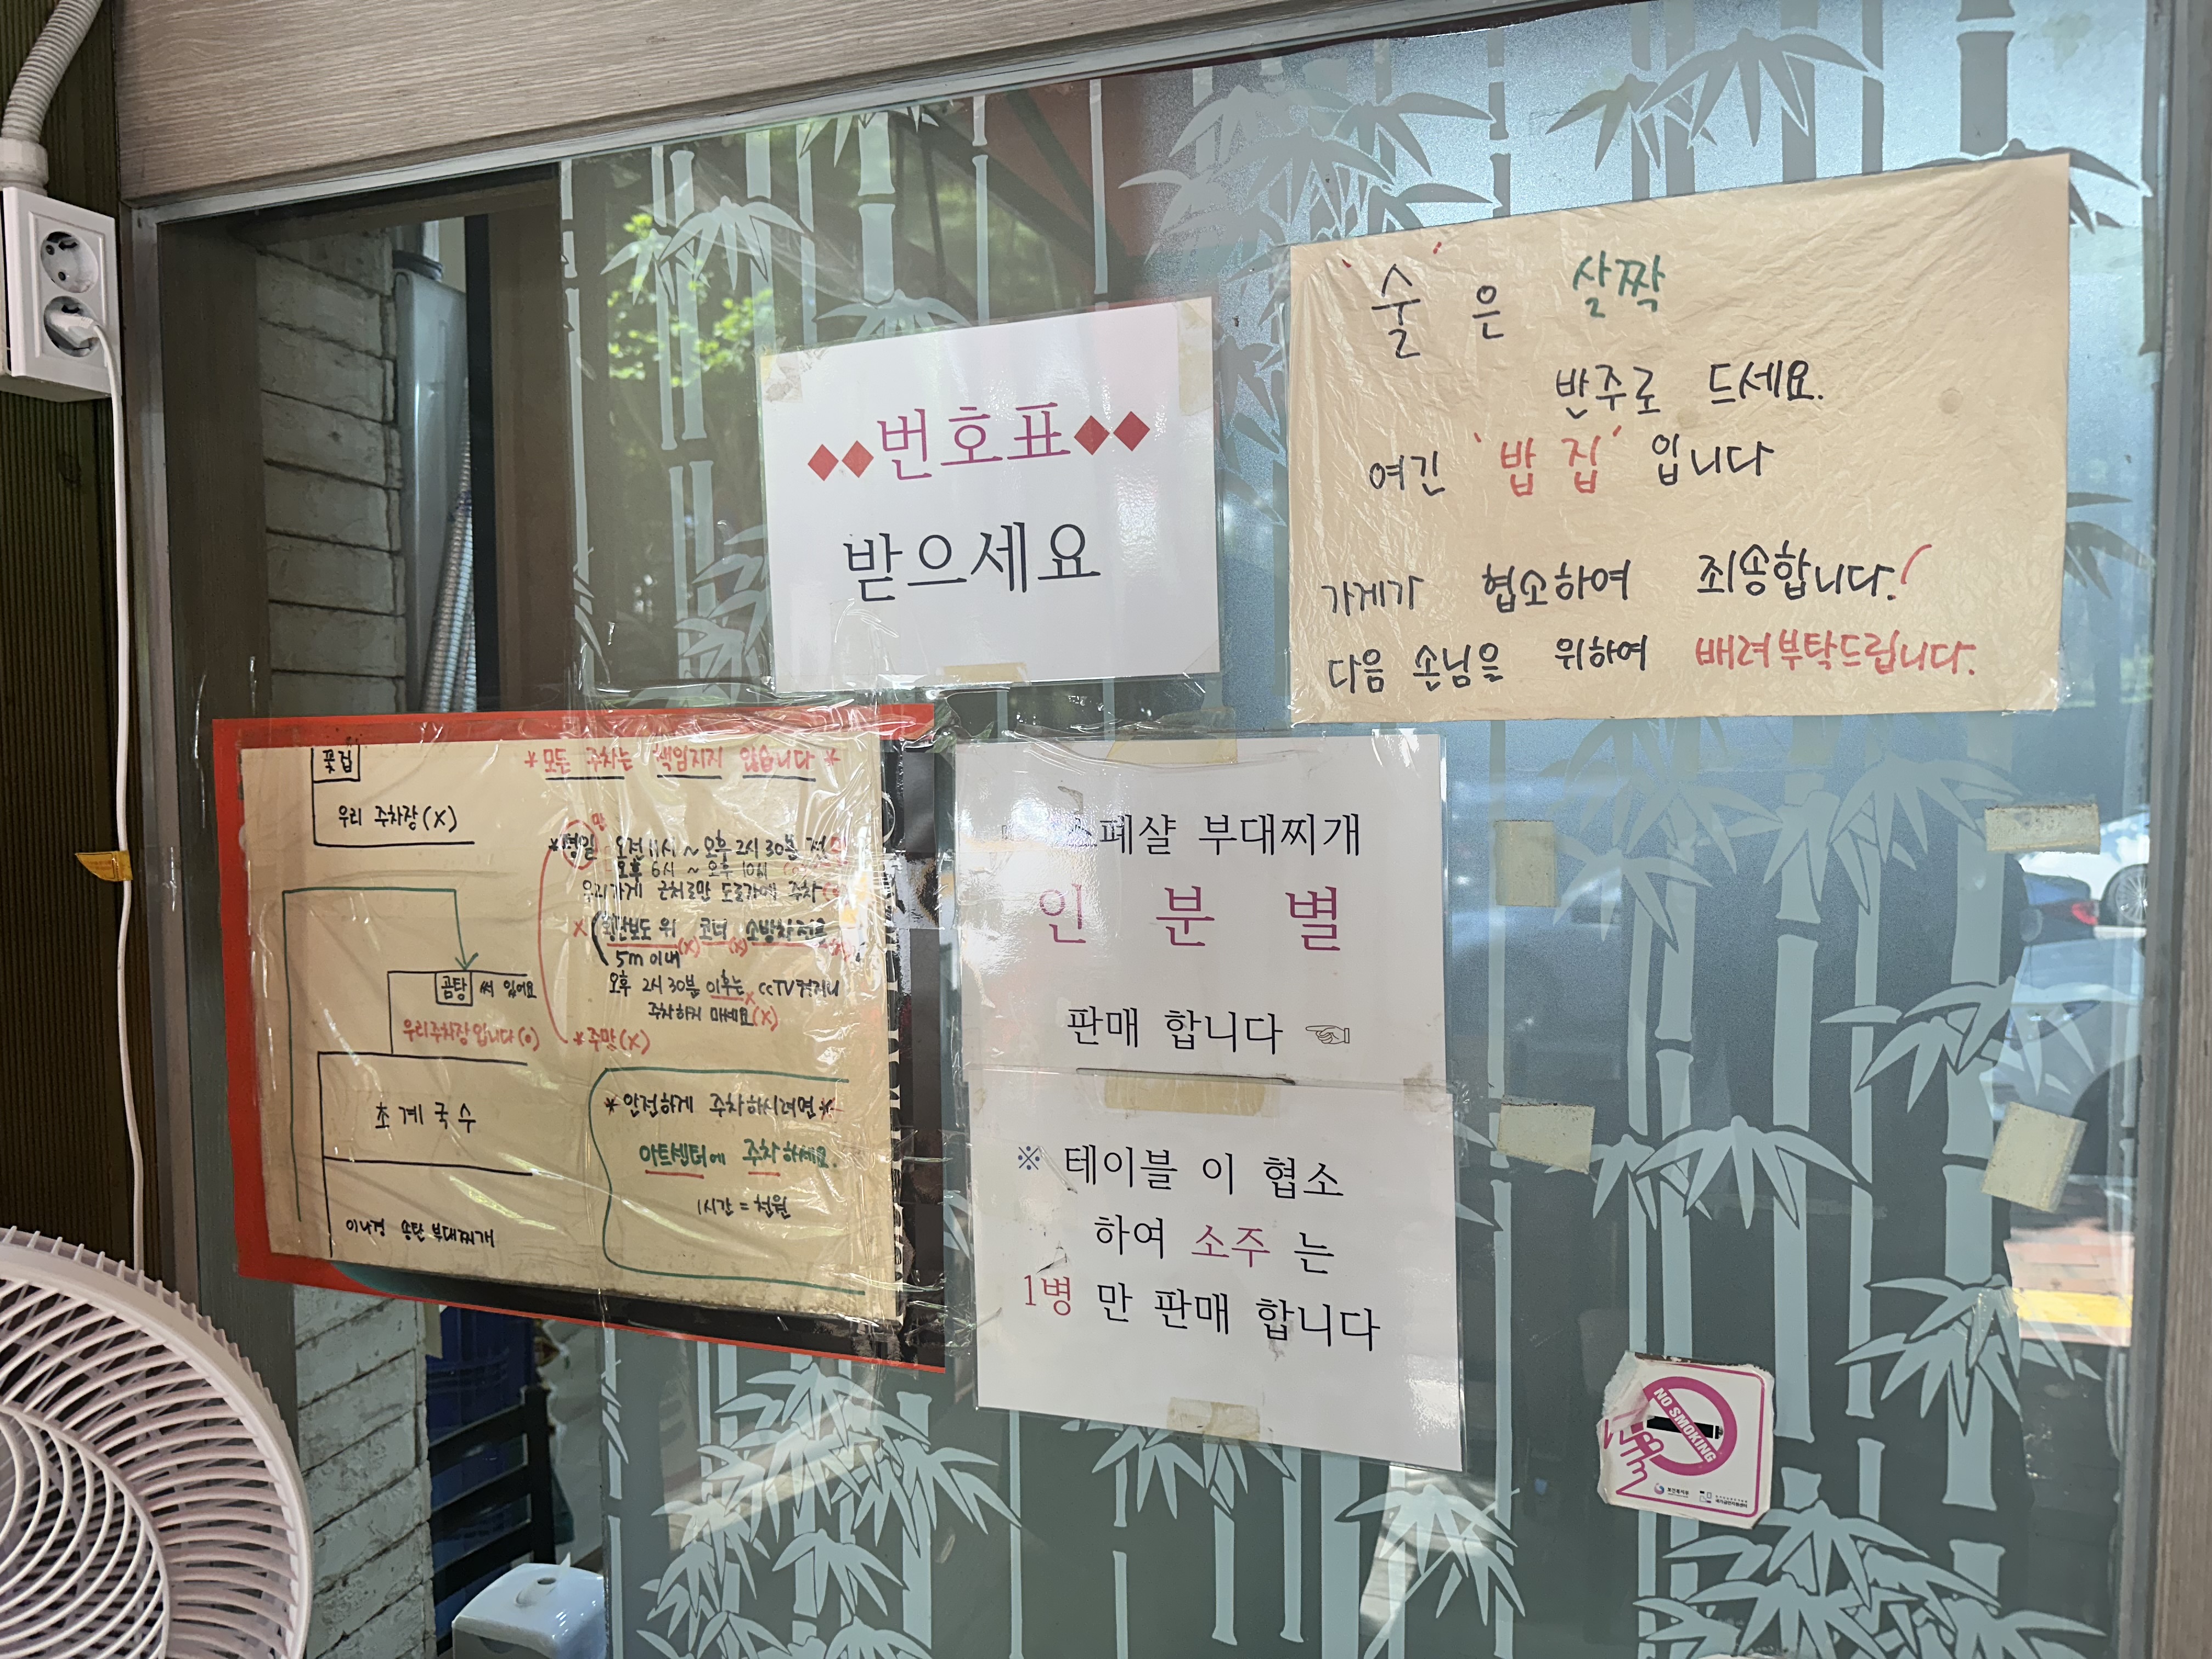 '술'은 살짝
반주로 드세요.
여긴 '밥집' 입니다
가게가 협소하여 죄송합니다!
다음 손님을 위하여 배려부탁드립니다.
◆◆번호표◆◆
받으세요
꽃집
우리 주차장(X)
곰탕 써 있어요
우리주차장입니다(o)
초계국수
이나경 송탄 부대찌개
*모든 주차는 책임지지 않습니다*
만
*평일 오전 11시 ~ 오후 2시 30분
오후 6시 ~ 오후 10시
우리가게 근처로만 도로가에 주차
X 횡단보도 위(X) 코너(X)
5m 이내
오후 2시 30분 이후는 X ccTV
주차하지 마세요(X)
*주말(X)
*안전하게 주차하시려면*
아트센터에 주차하세요.
1시간 = 천원
스페샬 부대찌개
인 분 별
판매 합니다 ☜
※ 테이블 이 협소
하여 소주 는
1병 만 판매 합니다
NO SMOKING
보건복지부